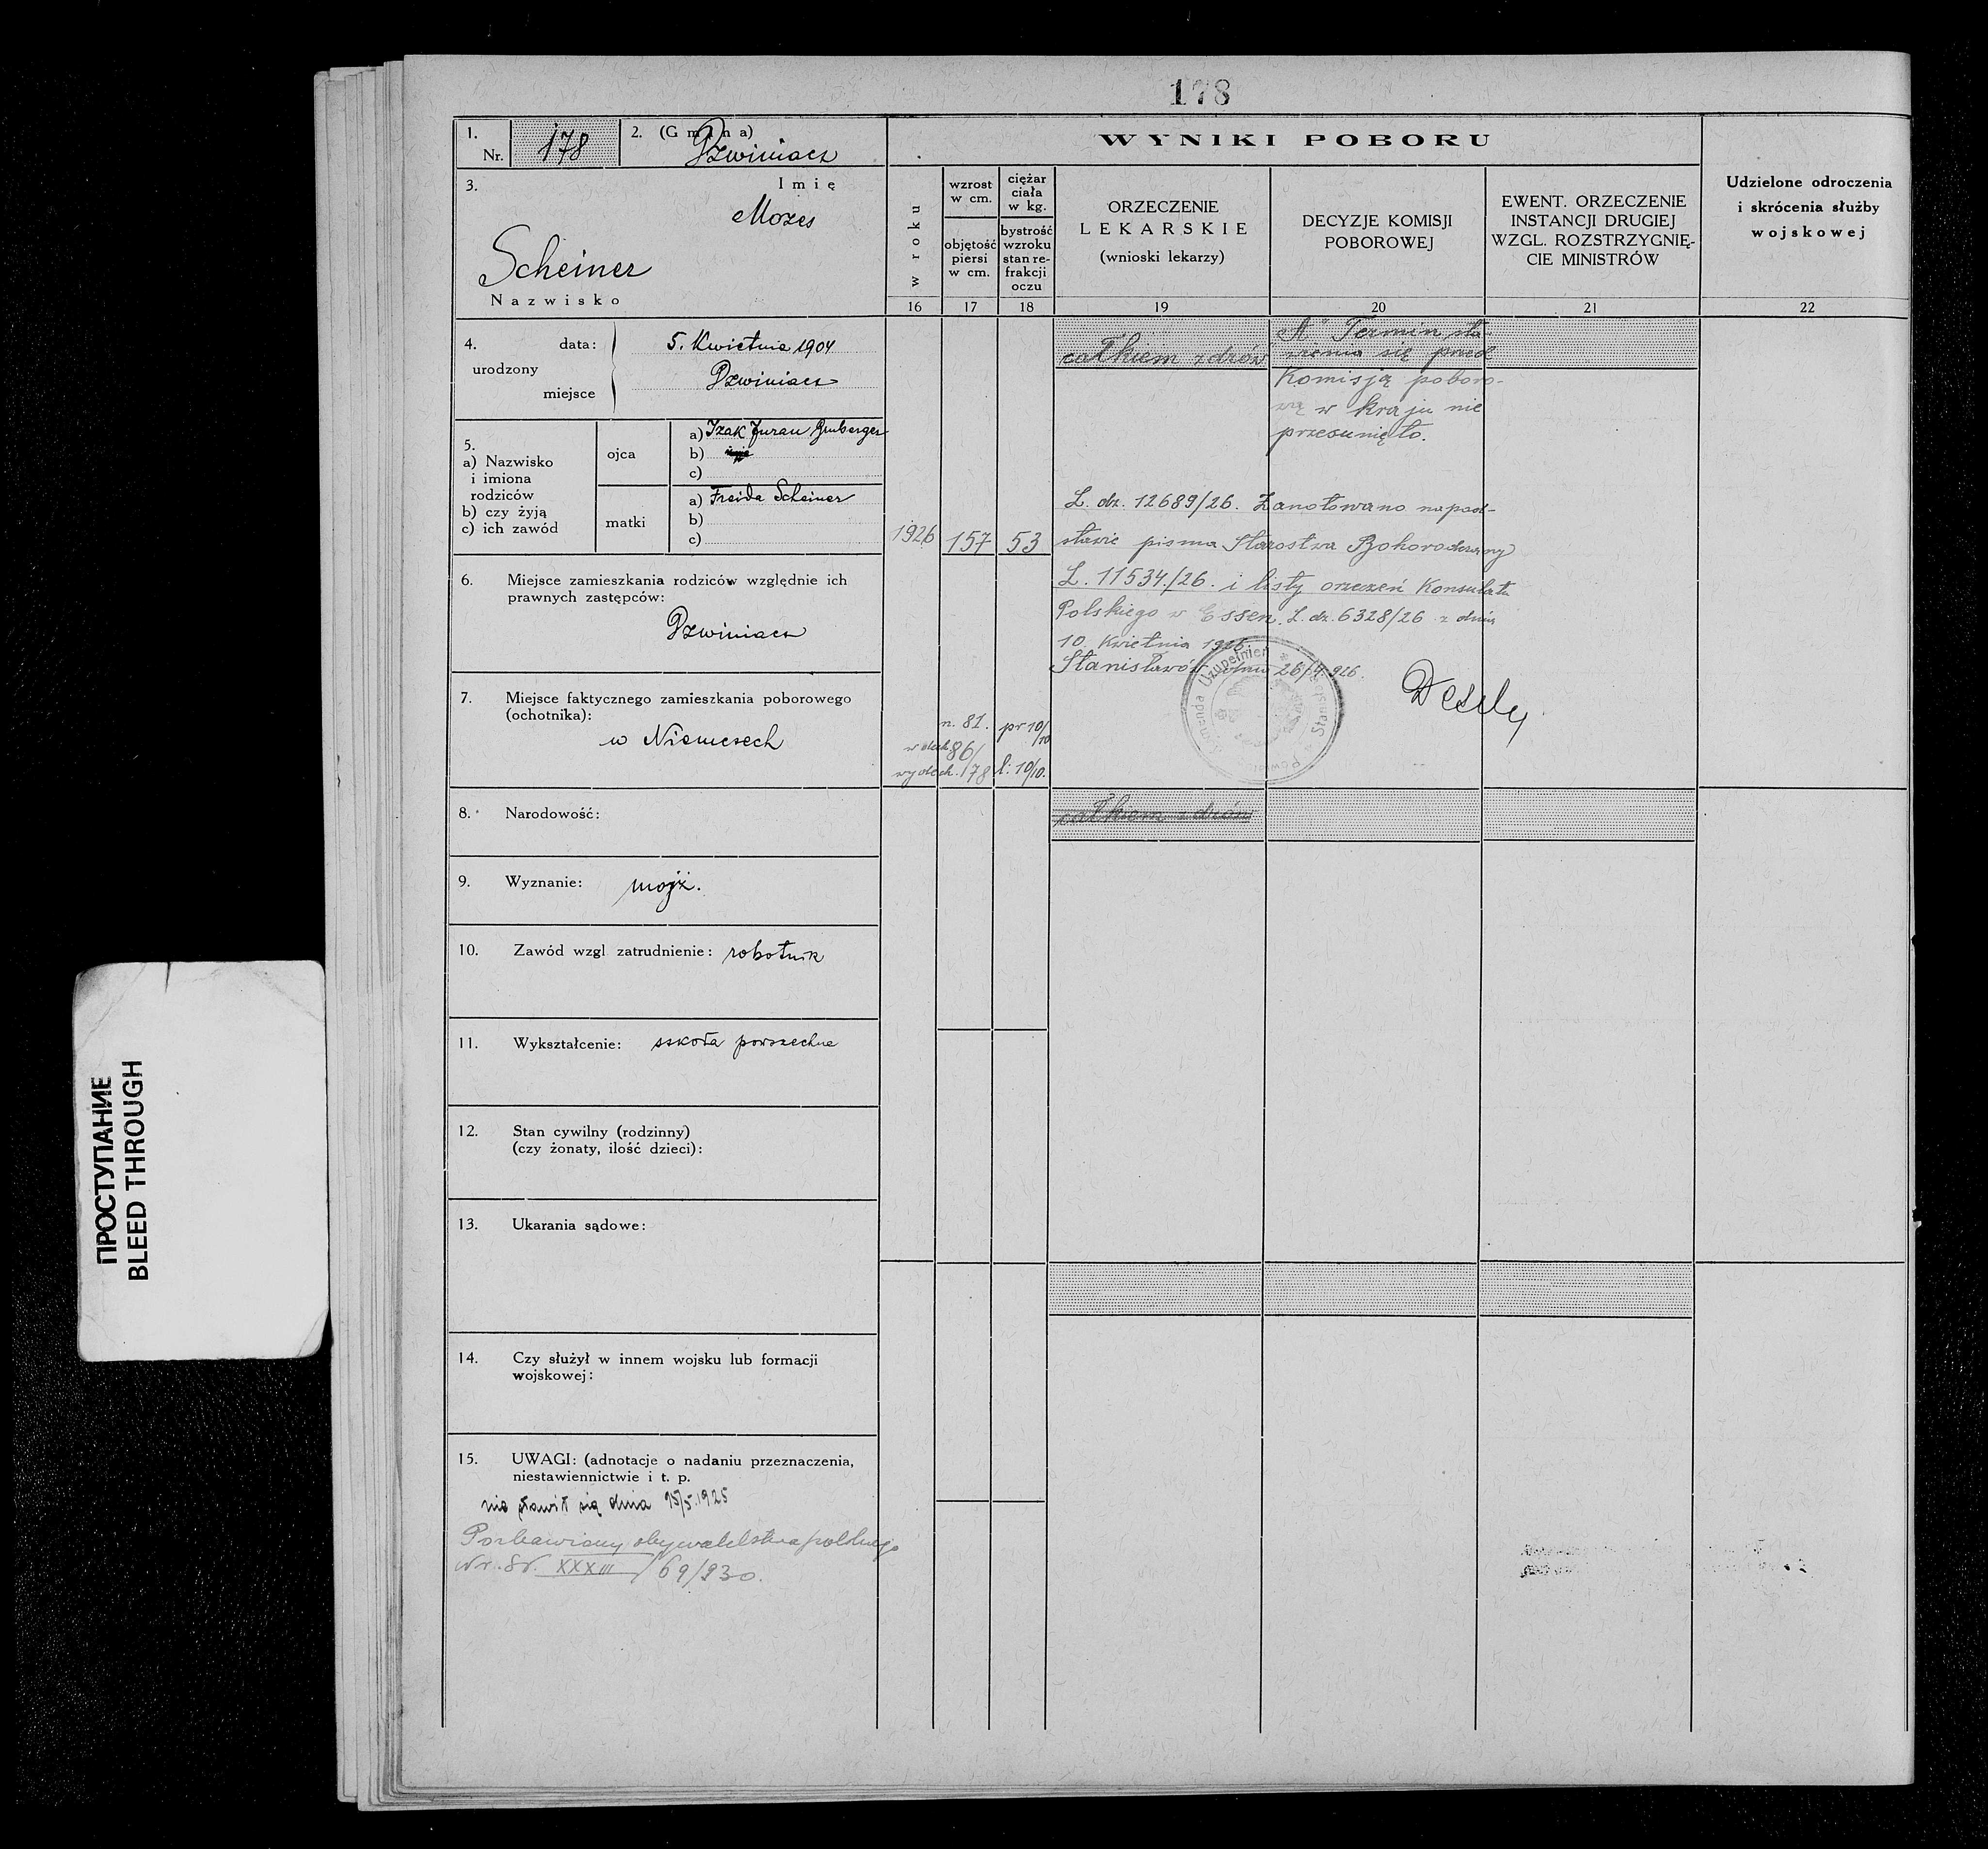 178
1. Nr. 178
2. (Gmina) Dzwiniacz
3. Imię
Mozes
Scheiner
Nazwisko
4. urodzony
data: 5. Kwietnia 1904
miejsce Dzwiniacz
5.
a) Nazwisko
i imiona
rodziców
b) czy żyją
c) ich zawód
ojca
a) Izak Juran Gruberger
b)
c)
matki
a) Freida Scheiner
b)
c)
6. Miejsce zamieszkania rodziców względnie ich
prawnych zastępców:
Dzwiniacz
7. Miejsce faktycznego zamieszkania poborowego
(ochotnika):
w Niemczech
8. Narodowość:
9. Wyznanie: mojż.
10. Zawód wzgl zatrudnienie: robotnik
11. Wykształcenie: szkoła powszechna
12. Stan cywilny (rodzinny)
(czy żonaty, ilość dzieci):
13. Ukarania sądowe:
14. Czy służył w innem wojsku lub formacji
wojskowej:
15. UWAGI: (adnotacje o nadaniu przeznaczenia,
niestawiennictwie i t. p.
nie stawił się dnia 15/5.1925
Pozbawiony obywatelstwa polskiego
Nr. XXXIII/69/930.
WYNIKI POBORU
w roku
wzrost
w cm.
objętość
piersi
w cm.
ciężar
ciała
w kg.
bystrość
wzroku
stan re-
frakcji
oczu
ORZECZENIE
LEKARSKIE
(wnioski lekarzy)
DECYZJE KOMISJI
POBOROWEJ
EWENT. ORZECZENIE
INSTANCJI DRUGIEJ
WZGL. ROZSTRZYGNIĘ-
CIE MINISTRÓW
Udzielone odroczenia
i skrócenia służby
wojskowej
16 17 18 19 20 21 22
całkiem zdrów
"A" Termin sta-
wienia się przed
Komisją poboro-
wą w kraju nie
przesunięto.
L. dz. 12689/26. Zanotowano na pod-
1926 157 53 stawie pisma Starostwa Bohorodczany
L. 11534./26. i listy orzeczeń Konsulatu
Polskiego w Essen. L. dz. 6328/26 z dnia
10. Kwietnia 1926.
Stanisławów dnia 26/4.926.
n. 81. pr 10/10
wdech 86/
wydech. 178 l: 10/10.
całkiem zdrów
ПРОСТУПАНИЕ
BLEED THROUGH